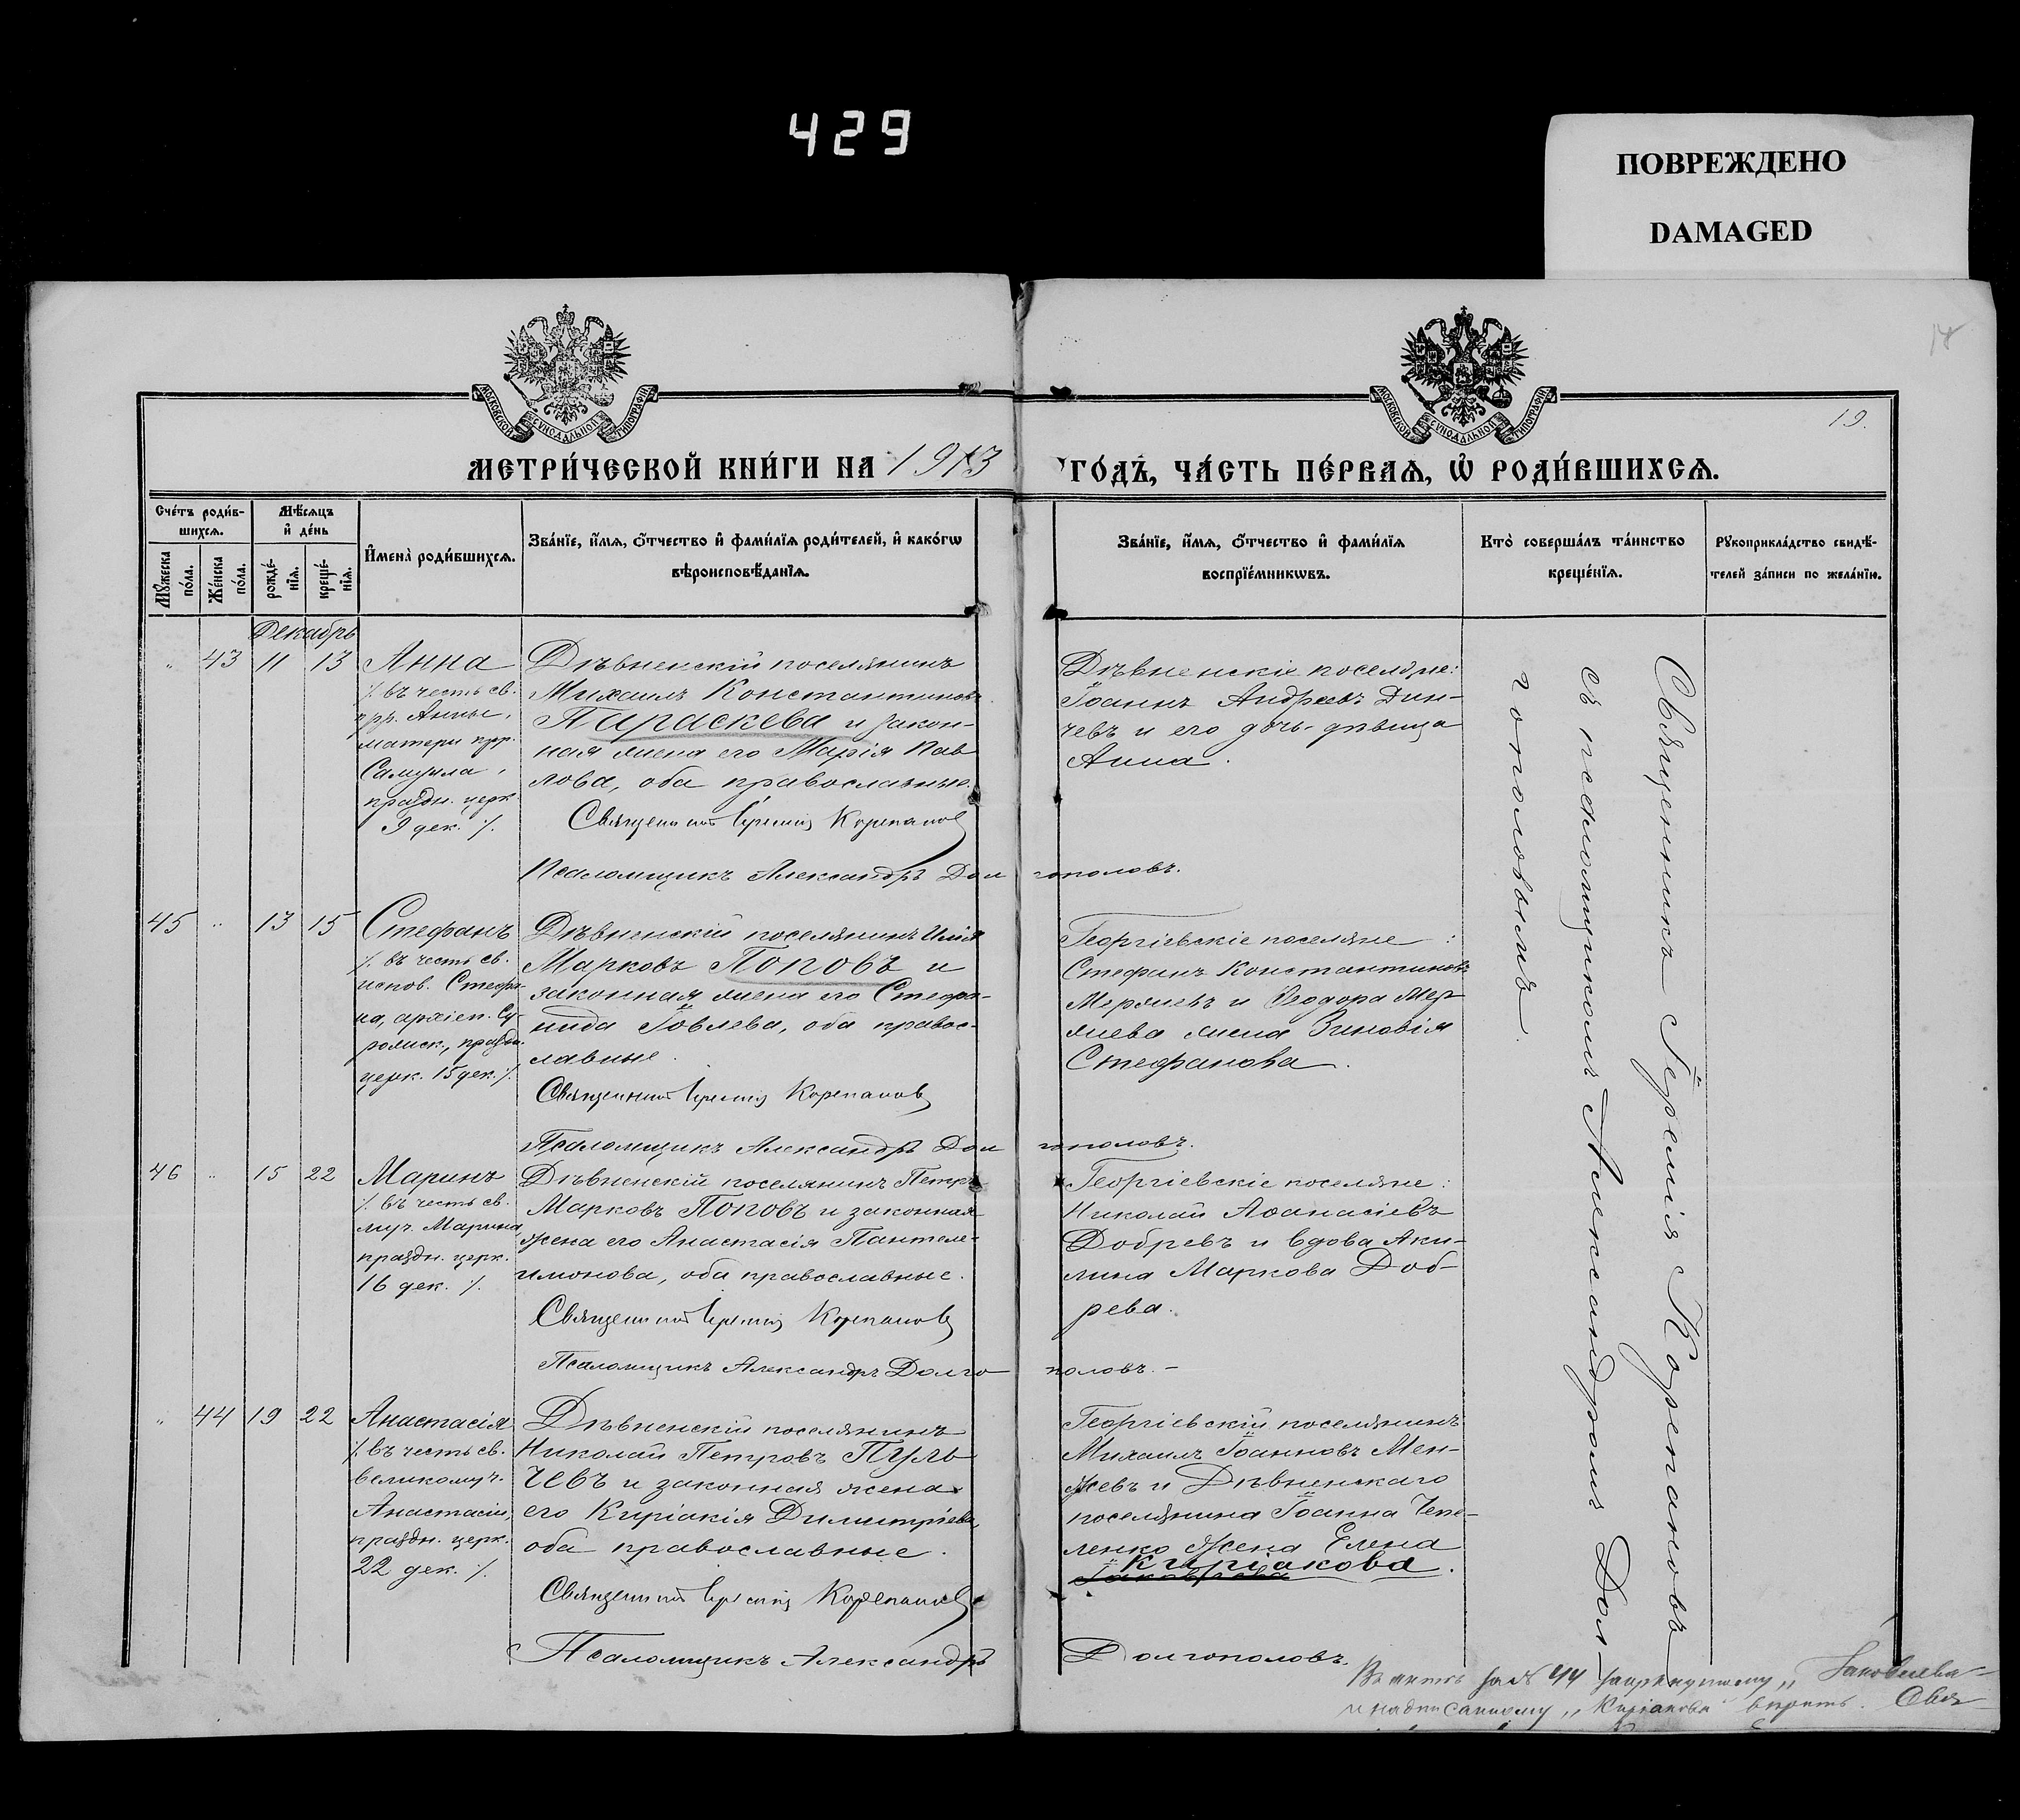 429
ПОВРЕЖДЕНО
DAMAGED
14
19.
МОСКОВСКОЙ СѴНОДАЛЬНОЙ ТИПОГРАФІИ
МОСКОВСКОЙ СѴНОДАЛЬНОЙ ТИПОГРАФІИ
МЕТРИ́ЧЕСКОЙ КНИ́ГИ НА 1913
ГО́ДЪ, ЧА́СТЬ ПЕ́РВАѦ, Ѡ҆ РОДИ́ВШИХСѦ.
Сче́тъ роди́в-
шихсѧ.
Мꙋ́жеска
по́ла.
Же́нска
по́ла.
Мѣ́сѧцъ
и҆ де́нь
рожде́-
нїѧ.
креще́-
нїѧ.
И҆мена̀ роди́вшихсѧ.
Зва́нїе, и҆́мѧ, ѻ҆́тчество и҆ фами́лїѧ роди́телей, и҆ како́гѡ
вѣроисповѣ́данїѧ.
Зва́нїе, и҆́мѧ, ѻ҆́тчество и҆ фами́лїѧ
воспрїе́мникѡвъ.
Кто̀ соверша́лъ та́инство
креще́нїѧ.
Рꙋкоприкла́дство свидѣ́-
телей за́писи по жела́нїю.
Декабрь
" 43 11 13
Анна
/. въ честь св.
прр. Анны,
матери прр.
Самуила,
праздн. церк
9 дек. /.
Дѣвненскій поселянинъ
Михаилъ Константиновъ
Параскева и закон-
ная жена его Марія Пав
лова, оба православные.
Священникъ Іеремія Корепановъ
Псаломщикъ Александръ Дол гополовъ.
Дѣвненскіе поселяне:
Іоаннъ Андреевъ Дин-
чевъ и его дочь-дѣвица
Анна.
45 " 13 15
Стефанъ
/. въ честь св.
испов. Стефа-
на, архіеп. Су-
рожск., праздн.
церк. 15 дек. /.
Дѣвненскій поселянинъ Илія
Марковъ Поповъ и
законная жена его Стефа-
нида Іовлева, оба правос-
лавные.
Священникъ Іеремія Корепановъ
Псаломщикъ Александръ Дол гополовъ.
Георгіевскіе поселяне:
Стефанъ Константиновъ
Мержиевъ и Ѳеодора Мер
жиева жена Зиновія
Стефанова.
46 " 15 22
Маринъ
/. въ честь св.
муч. Марина
праздн. церк.
16 дек. /.
Дѣвненскій поселянинъ Петръ
Марковъ Поповъ и законная
жена его Анастасія Пантеле-
имонова, оба православные.
Священникъ Іеремія Корепановъ
Псаломщикъ Александръ Долго половъ.-
Георгіевскіе поселяне:
Николай Аѳанасіевъ
Добревъ и вдова Аки-
лина Маркова Доб-
рева.
" 44 19 22
Анастасія
/. въ честь св.
великомуч.
Анастасіи,
праздн. церк.
22 дек. /.
Дѣвненскій поселянинъ
Николай Петровъ Пуль
чевъ и законная жена
его Киріакія Димитріева,
оба православные.
Священникъ Іеремія Корепановъ
Псаломщикъ Александръ Долгополовъ.
Георгіевскій поселянинъ
Михаилъ Іоанновъ Мен-
жевъ и Дѣвненскаго
поселянина Іоанна Чепе-
ленко жена Елена
Киріакова.
Священникъ Іеремія Корепановъ
съ псаломщикомъ Александромъ Дол-
гополовымъ.
за № 44 зачеркнутому "Іаковлева"
и надписанному "Киріакова" вѣрить. Свя